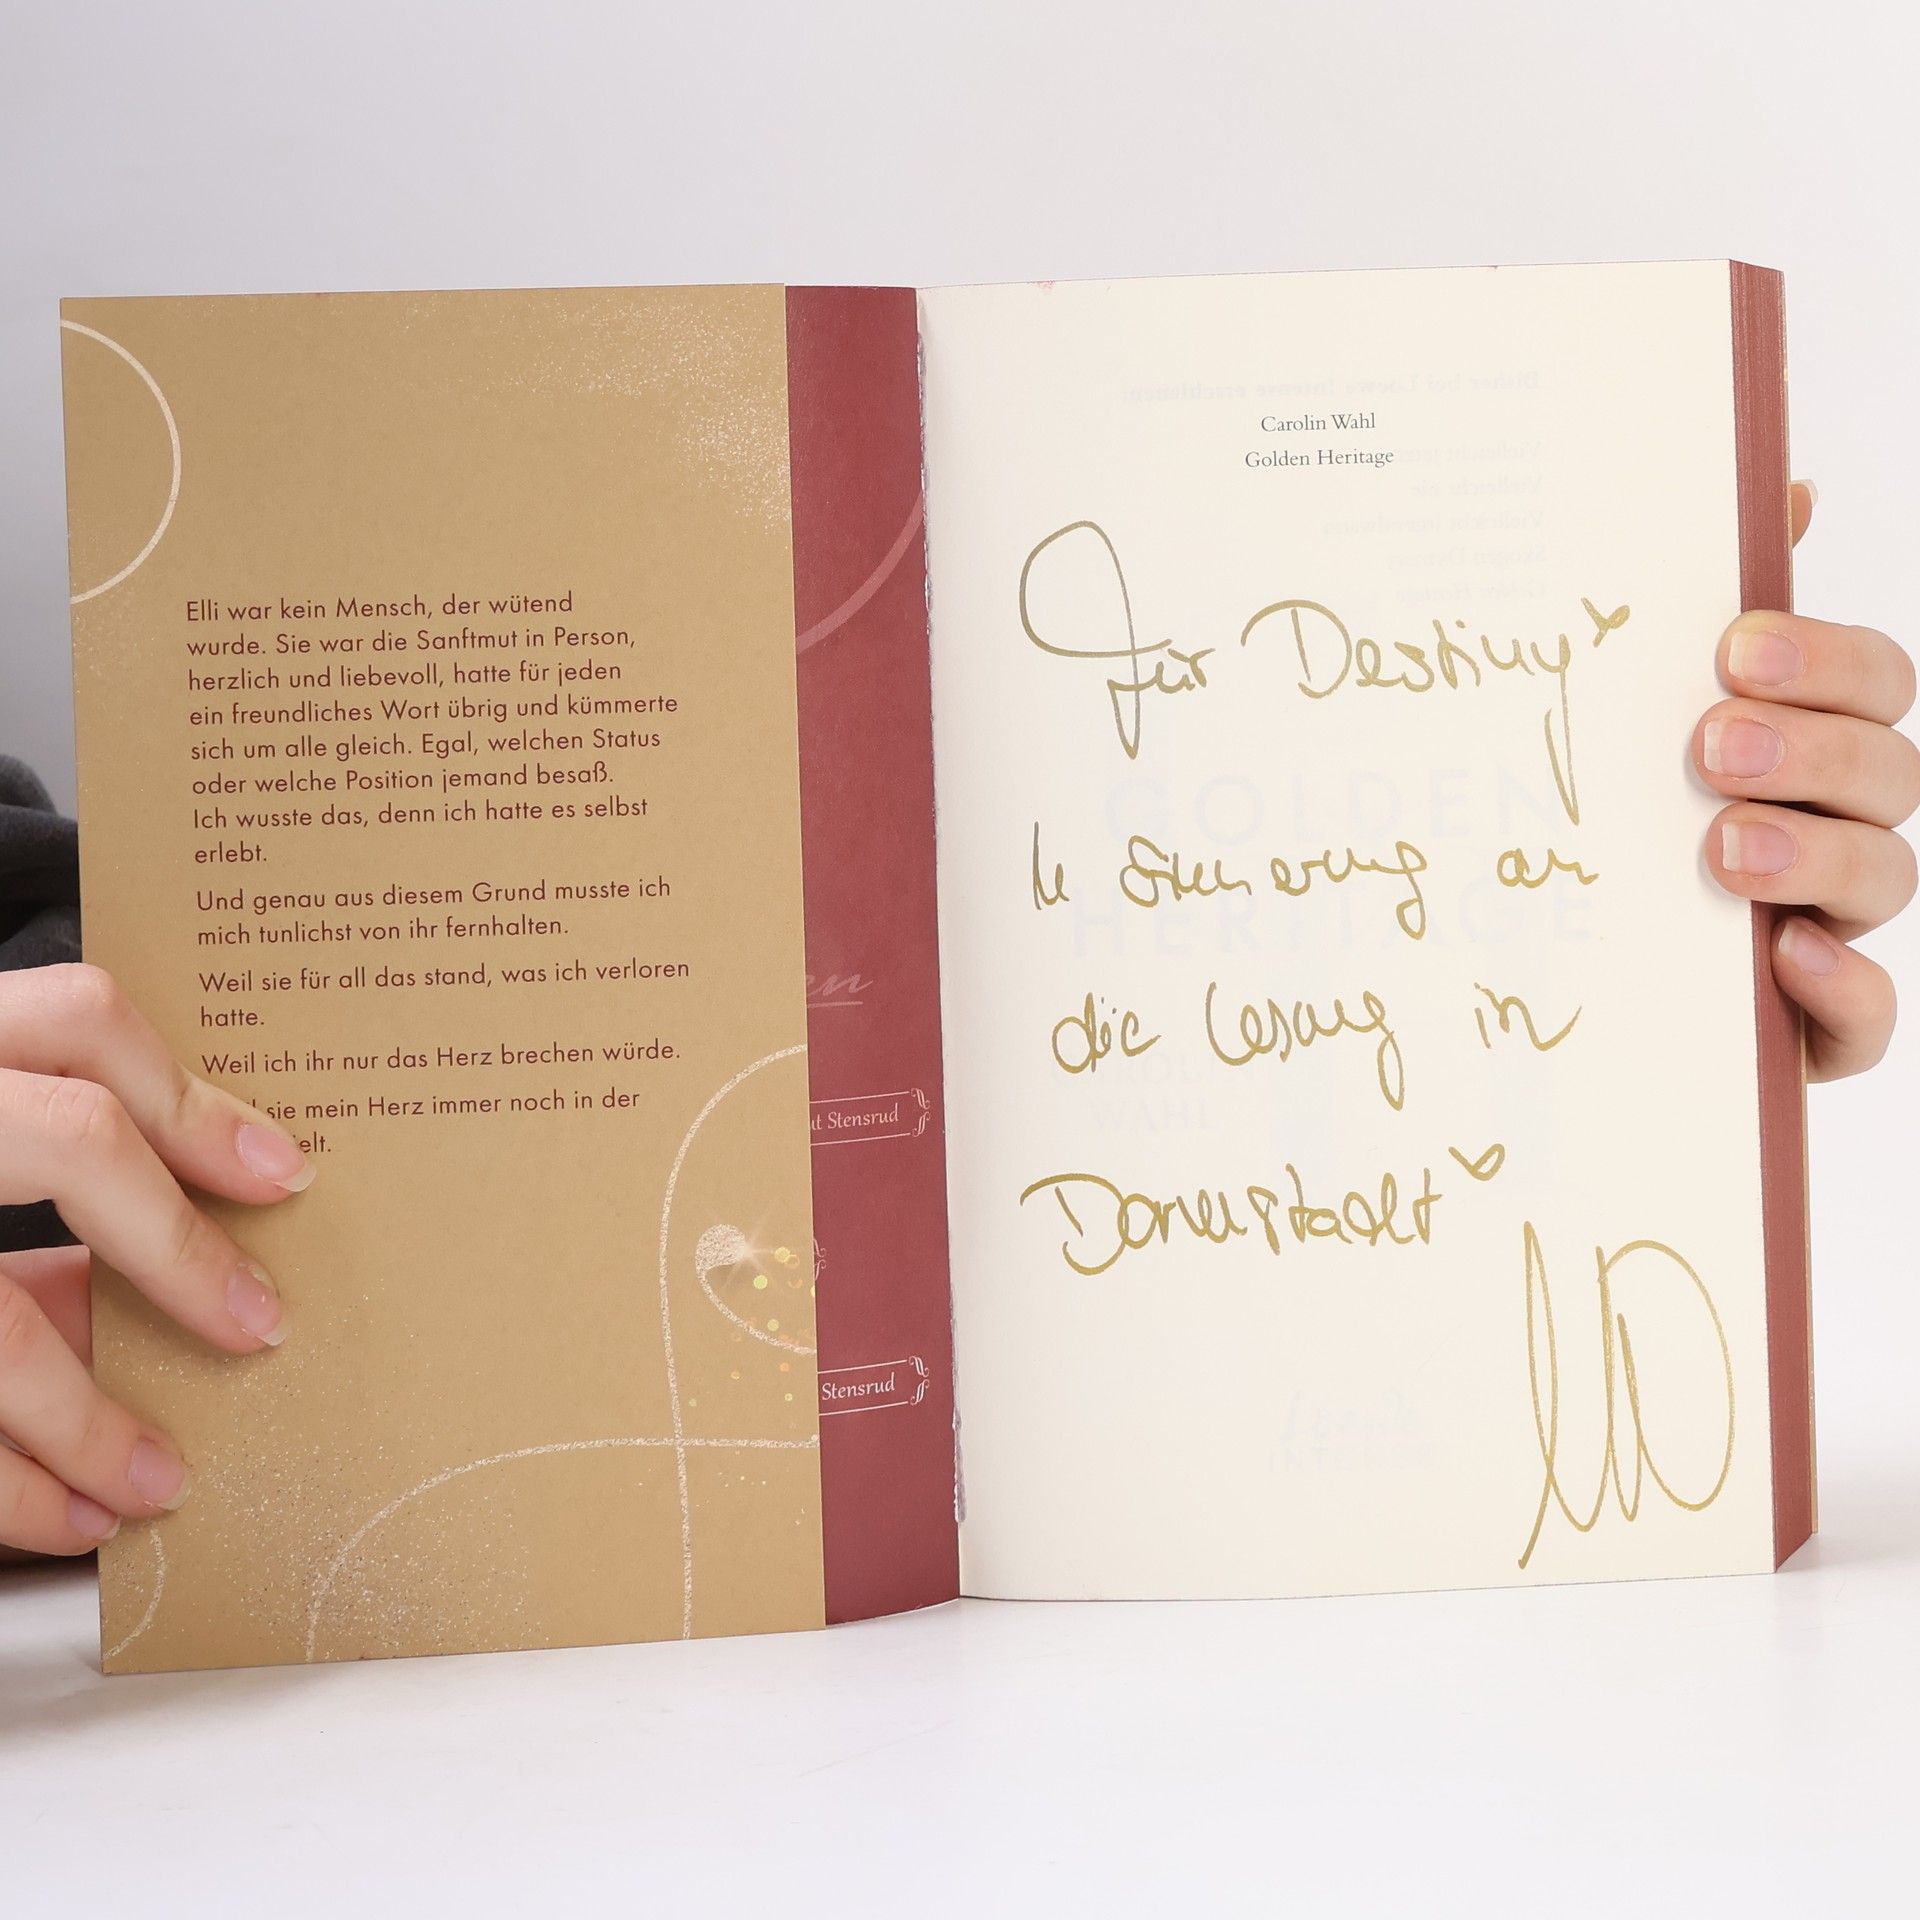 Elli war kein Mensch, der wütend
wurde. Sie war die Sanftmut in Person,
herzlich und liebevoll, hatte für jeden
ein freundliches Wort übrig und kümmerte
sich um alle gleich. Egal, welchen Status
oder welche Position jemand besaß.
Ich wusste das, denn ich hatte es selbst
erlebt.
Und genau aus diesem Grund musste ich
mich tunlichst von ihr fernhalten.
Weil sie für all das stand, was ich verloren
hatte.
Weil ich ihr nur das Herz brechen würde.
sie mein Herz immer noch in der
elt.
Stensrud
Stensrud
Carolin Wahl
Golden Heritage
Für Destiny
In Erinnerung an
die Lesung in
Darmstadt
GOLDEN
HERITAGE
WAHL